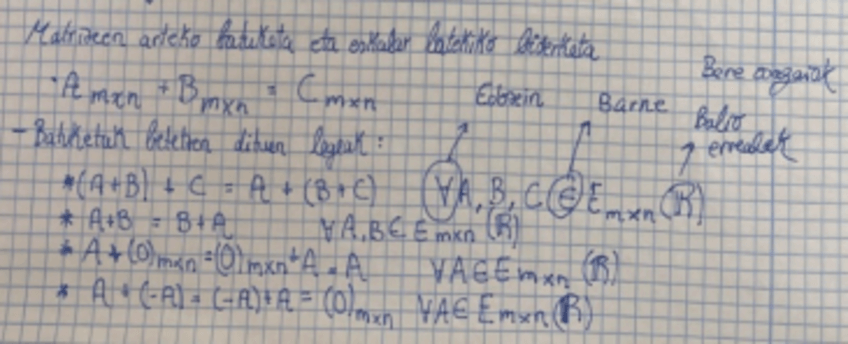 Matrizeen arteko batuketa eta eskalar batekiko biderketa
· A mxn + B mxn = C mxn
Edozein
Barne
Bere osagaiak
Balio errealak
- Batuketak betetzen dituen legeak:
*(A+B) + C = A + (B+C) ∀A, B, C ∈ E mxn (ℝ)
* A+B = B+A ∀A,B ∈ E mxn (ℝ)
* A + (0) mxn = (0) mxn + A = A ∀A ∈ E mxn (ℝ)
* A + (-A) = (-A)+A = (0) mxn ∀A ∈ E mxn (ℝ)